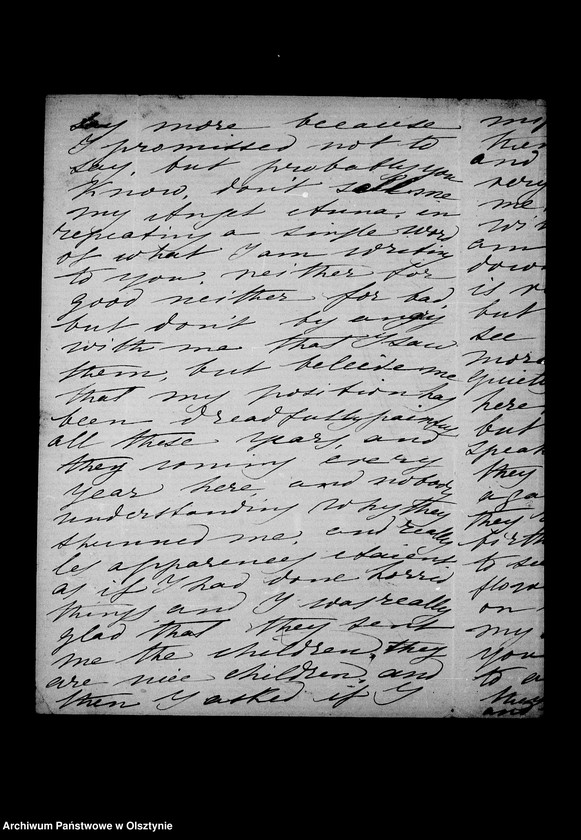 say more because
I promissed not to
say, but probably you
know, don't sell me
my Angel Anna, in
repeating a single word
of what I am writing
to you. neither for
good neither for bad
but don't by angry
with me that I saw
them, but beleide me
that my position has
been dreadfully painful
all these years, and
they coming every
year here, and nobody
understanding why they
shunned me. and really
les apparences étaient
as if I had done horrid
things and I was really
glad that they sent
me the children, they
are nice children, and
then I asked if I
my
her
and
very
me
wit
am
down
is
but
see
more
quiet
here
but
speak
they
a ga
they
birth
to se
flow
on
my
you
to a
they
and
Archiwum Państwowe w Olsztynie